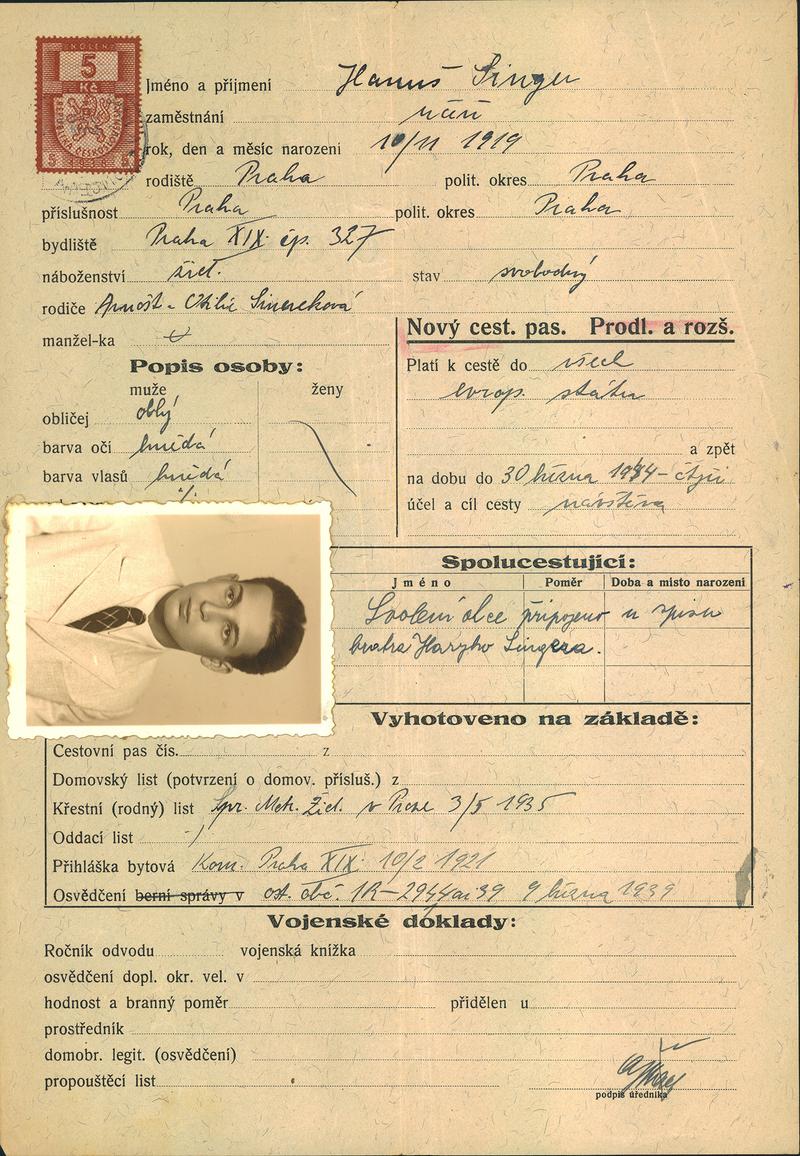 KOLEK
5
Kč
REPUBLIKA ČESKOSLOVENSKÁ
5 5
Jméno a příjmení Hanuš Singer
zaměstnání
rok, den a měsíc narození 10/11 1919
rodiště Praha polit. okres Praha
příslušnost Praha polit. okres Praha
bydliště Praha XIX čp. 327
náboženství žid. stav svobodný
rodiče Arnošt - Otilie
manžel-ka
Nový cest. pas. Prodl. a rozš.
Popis osoby:
muže ženy
obličej oblý
barva očí hnědá
barva vlasů hnědá
Platí k cestě do všech
evrop. států
a zpět
na dobu do 30 března 1944 - čtyři
účel a cíl cesty návštěva
Spolucestující:
Jméno Poměr Doba a místo narození
Svolení otce připojeno u spisu
bratra Haryho Singera.
Vyhotoveno na základě:
Cestovní pas čís. z
Domovský list (potvrzení o domov. přísluš.) z
Křestní (rodný) list Spr. Mat. Žid. v Praze 3/5 1935
Oddací list
Přihláška bytová Kom. Praha XIX 10/2 1921
Osvědčení berní správy v ost. obč. 1R-2944 39 9 března 1939
Vojenské doklady:
Ročník odvodu vojenská knížka
osvědčení dopl. okr. vel. v
hodnost a branný poměr přidělen u
prostředník
domobr. legit. (osvědčení)
propouštěcí list
podpis úředníka